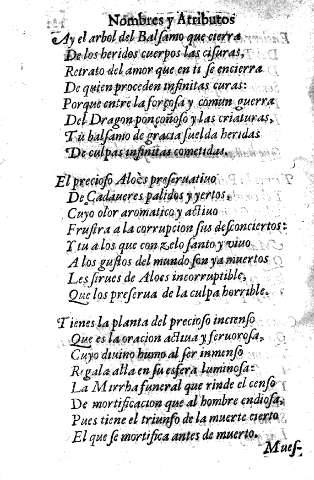 Nombres y Atributos
Ay el arbol del Balsamo que cierra
De los heridos cuerpos las cisuras,
Retrato del amor que en ti se encierra
De quien proceden infinitas curas:
Porque entre la forçosa y comun guerra
Del Dragon ponçoñoso y las criaturas,
Tu balsamo de gracia suelda heridas
De culpas infinitas cometidas.
El precioso Aloes preseruatiuo
De Cadaueres palidos y yertos,
Cuyo olor aromatico y actiuo
Frustra a la corrupcion sus desconciertos:
Y tu a los que con zelo santo y viuo
A los gustos del mundo son ya muertos
Les sirues de Aloes incorruptible,
Que los preserua de la culpa horrible.
Tienes la planta del precioso incienso
Que es la oracion actiua y feruorosa,
Cuyo diuino humo al ser inmenso
Regala alla en su esfera luminosa:
La Mirrha funeral que rinde el censo
De mortificacion que al hombre endiosa,
Pues tiene el triunfo de la muerte cierto
El que se mortifica antes de muerto.
Mues-